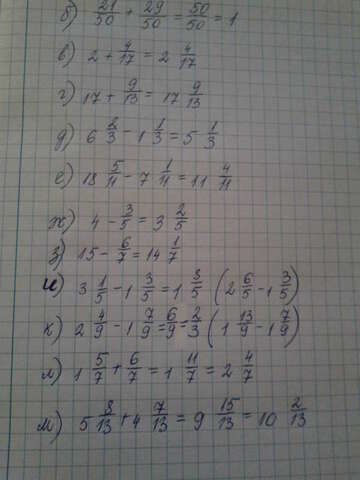 б) 21/50 + 29/50 = 50/50 = 1
в) 2 + 4/17 = 2 4/17
г) 17 + 9/13 = 17 9/13
д) 6 2/3 - 1 1/3 = 5 1/3
е) 18 5/11 - 7 1/11 = 11 4/11
ж) 4 - 3/5 = 3 2/5
з) 15 - 6/7 = 14 1/7
и) 3 1/5 - 1 3/5 = 1 3/5 (2 6/5 - 1 3/5)
к) 2 4/9 - 1 7/9 = 6/9 = 2/3 (1 13/9 - 1 7/9)
л) 1 5/7 + 6/7 = 1 11/7 = 2 4/7
м) 5 8/13 + 4 7/13 = 9 15/13 = 10 2/13